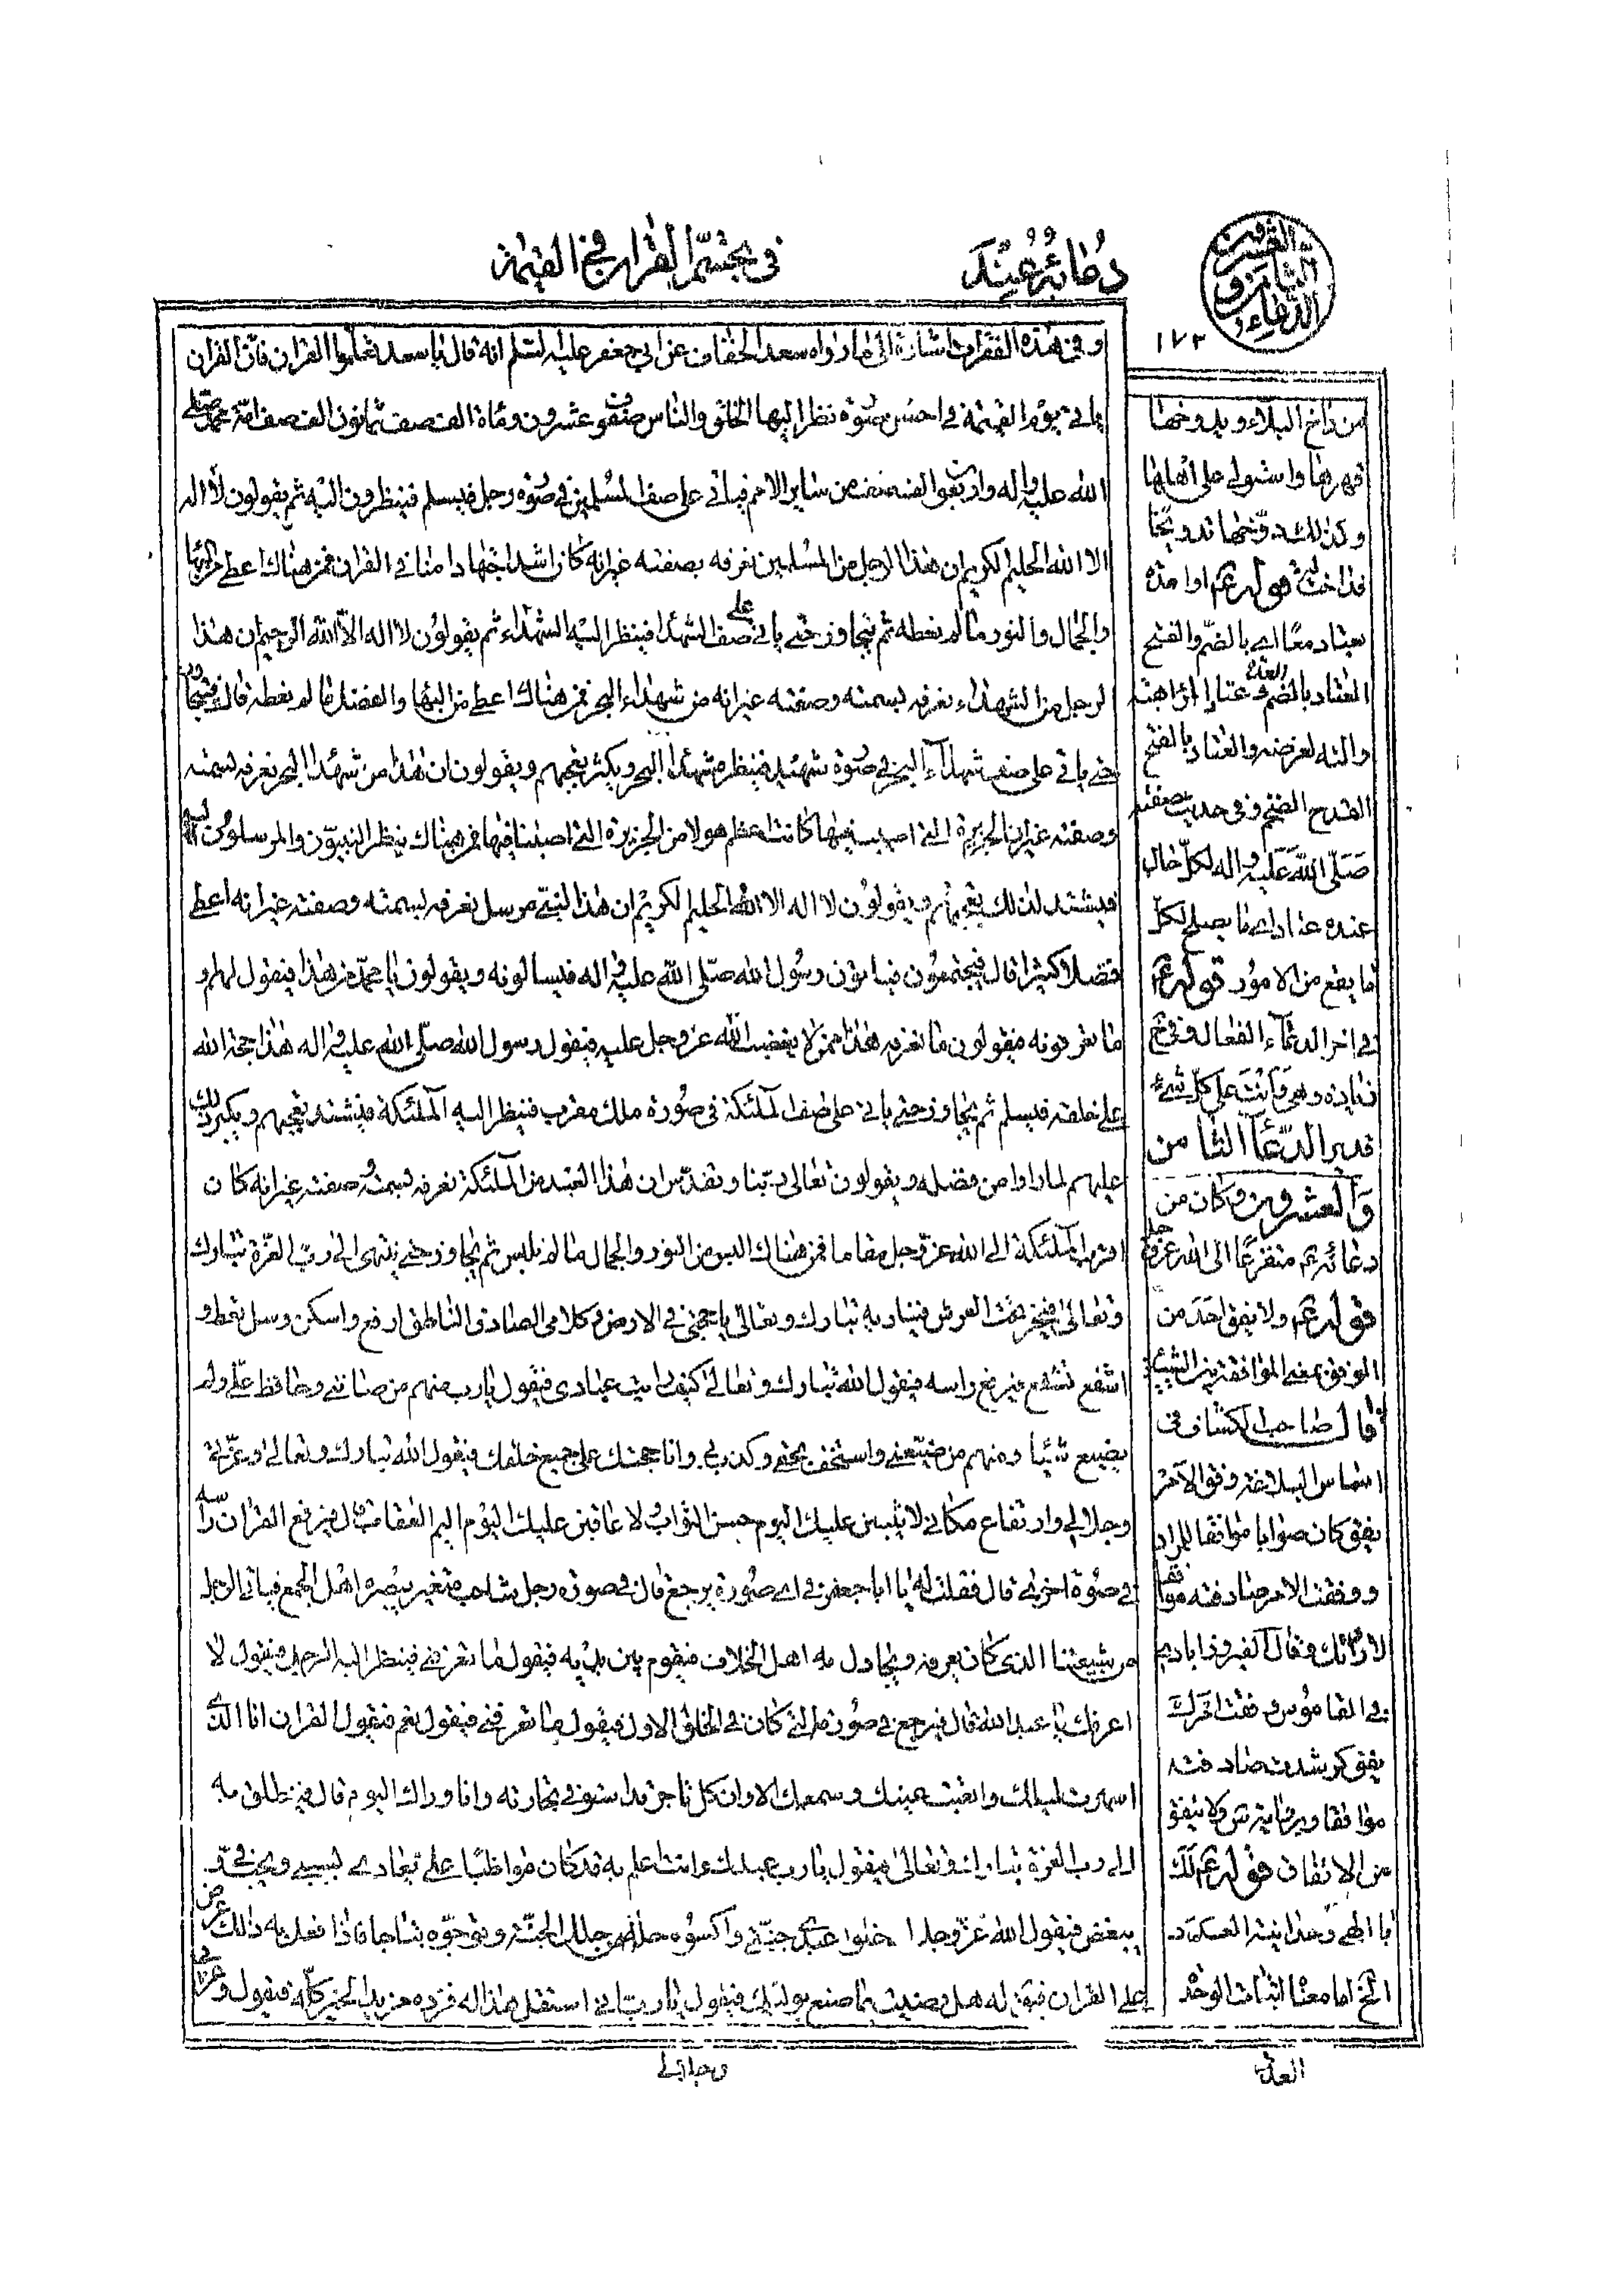 دعائه عند
في تجسّم القران في القيمة
الثامن و
الدعاء
١٧٣
و في هذه الفقرات اشارة الى ما رواه سعد الخفاف عن ابي جعفر عليه السلم انه قال يا سعد تعلموا القران فان القران
ياتي يوم القيمة في احسن صورة نظر اليها الخلق والناس صفوف عشرون ومأة الف صف ثمانون الف صف امة محمد صلى
الله عليه واله واربعون الف صف من ساير الامم فياتي على صف المسلمين في صورة رجل فيسلم فينظرون اليه ثم يقولون لا اله
الا الله الحليم الكريم ان هذا الرجل من المسلمين نعرفه بصفته غير انه كان اشد اجتهادا منا في القران فمن هناك اعطى من البهاء
والجمال والنور ما لم نعطه ثم يتجاوز حتى ياتي على صف الشهداء فينظر اليه الشهداء ثم يقولون لا اله الا الله الرب الرحيم ان هذا
الرجل من الشهداء نعرفه بسمته وصفته غير انه من شهداء البحر فمن هناك اعطى من البهاء والفضل ما لم نعطه قال فيتجاوز
حتى ياتي على صف شهداء البحر في صورة شهيد فينظر شهداء البحر ويكثر تعجبهم ويقولون ان هذا من شهداء البحر نعرفه بسمته
وصفته غير ان الجزيرة التي اصيب فيها كانت اعظم هولا من الجزيرة التي اصبنا فيها فمن هناك ينظر النبيون والمرسلون اليه
فيشتد لذلك تعجبهم ويقولون لا اله الا الله الحليم الكريم ان هذا لنبي مرسل نعرفه بسمته وصفته غير انه اعطى
فضلا كثيرا قال فيجتمعون فياتون رسول الله صلى الله عليه واله فيسالونه ويقولون يا محمد من هذا فيقول لهم او
ما تعرفونه فيقولون ما نعرفه هذا ممن لا يغضب الله عز وجل عليه فيقول رسول الله صلى الله عليه واله هذا حجة الله
على خلقه فيسلم ثم يتجاوز حتى ياتي على صف الملئكة في صورة ملك مقرب فينظر اليه الملئكة فيشتد تعجبهم ويكبر ذلك
عليهم لما راوا من فضله ويقولون تعالى ربنا وتقدس ان هذا العبد من الملئكة نعرفه بسمته وصفته غير انه كان
اقرب الملئكة الى الله عز وجل مقاما فمن هناك البس من النور والجمال ما لم نلبس ثم يجاوز حتى ينتهي الى رب العزة تبارك
وتعالى فيخر تحت العرش فيناديه تبارك وتعالى يا حجتي في الارض وكلامي الصادق الناطق ارفع راسك وسل تعط و
اشفع تشفع فيرفع راسه فيقول الله تبارك وتعالى كيف رايت عبادي فيقول يا رب منهم من صانني وحافظ علي ولم
يضيع شيئا ومنهم من ضيعني واستخف بحقي وكذب بي وانا حجتك على جميع خلقك فيقول الله تبارك وتعالى وعزتي
وجلالي وارتفاع مكاني لاثيبن عليك اليوم حسن الثواب ولاعاقبن عليك اليوم اليم العقاب قال فيرفع القران راسه
في صورة اخرى قال فقلت له يا ابا جعفر في اي صورة يرجع قال في صورة رجل شاحب متغير يبصره اهل الجمع فياتي الرجل
من شيعتنا الذي كان يعرفه ويجادل به اهل الخلاف فيقوم بين يديه فيقول ما تعرفني فينظر اليه الرجل فيقول لا
اعرفك يا عبد الله قال فيرجع في صورته التي كان في الخلق الاول فيقول ما تعرفني فيقول نعم فيقول القران انا الذي
اسهرت ليلك وانصبت عينك وسمعك الا وان كل تاجر قد استوفى تجارته وانا وراك اليوم قال فينطلق به
الى رب العزة تبارك وتعالى فيقول يا رب عبدك وانت اعلم به قد كان مواظبا علي يعادي بسببي ويحب فيّ و
يبغض فيقول الله عز وجل ادخلوا عبدي جنتي واكسوه حلة من حلل الجنة وتوجوه بتاج فاذا فعل به ذلك عرض
على القران فيقال له هل رضيت بما صنع بوليك فيقول يا رب اني استقل هذا له فزده مزيد الخير كله فيقول وعزتي
وجلالي
من داخ البلاد ويدوخها
قهرها واستولى على اهلها
وكذلك دوخها تدويخا
فداخت له قوله ع او امده
بعتاد معا اي بالضم والفتح
العتاد بالضم العدة عتاد المرء اهبته
والته لغرضه والعتاد بالفتح
القدح الضخم وفي حديث صفته
صلى الله عليه واله لكل حال
عنده عتاد اي ما يصلح لكل
ما يقع من الامور قوله ع
في اخر الدعاء الفعال وفي نسخ
زيادة وهي وانت على كل شيء
قدير الدعاء الثامن
والعشرون وكان من
دعائه ع متفزعا الى الله عز وجل
قوله ع ولا يفق احد من
الوفق بمعنى الموافقة بين الشيئين
قال صاحب الكشاف في
اساس البلاغة وفق الامر
يفق كان صوابا موافقا للمراد
ووفقت الامر صادفته موافقا
لارادتك وقال الفيروزابادي
في القاموس وفقت امرك
يفق كرشدت صادفته
موافقا
من الاتفاق قوله ع لك
يا الهي وحدانية العدد
الخ اما معناه اثبات الوحدة
العدد